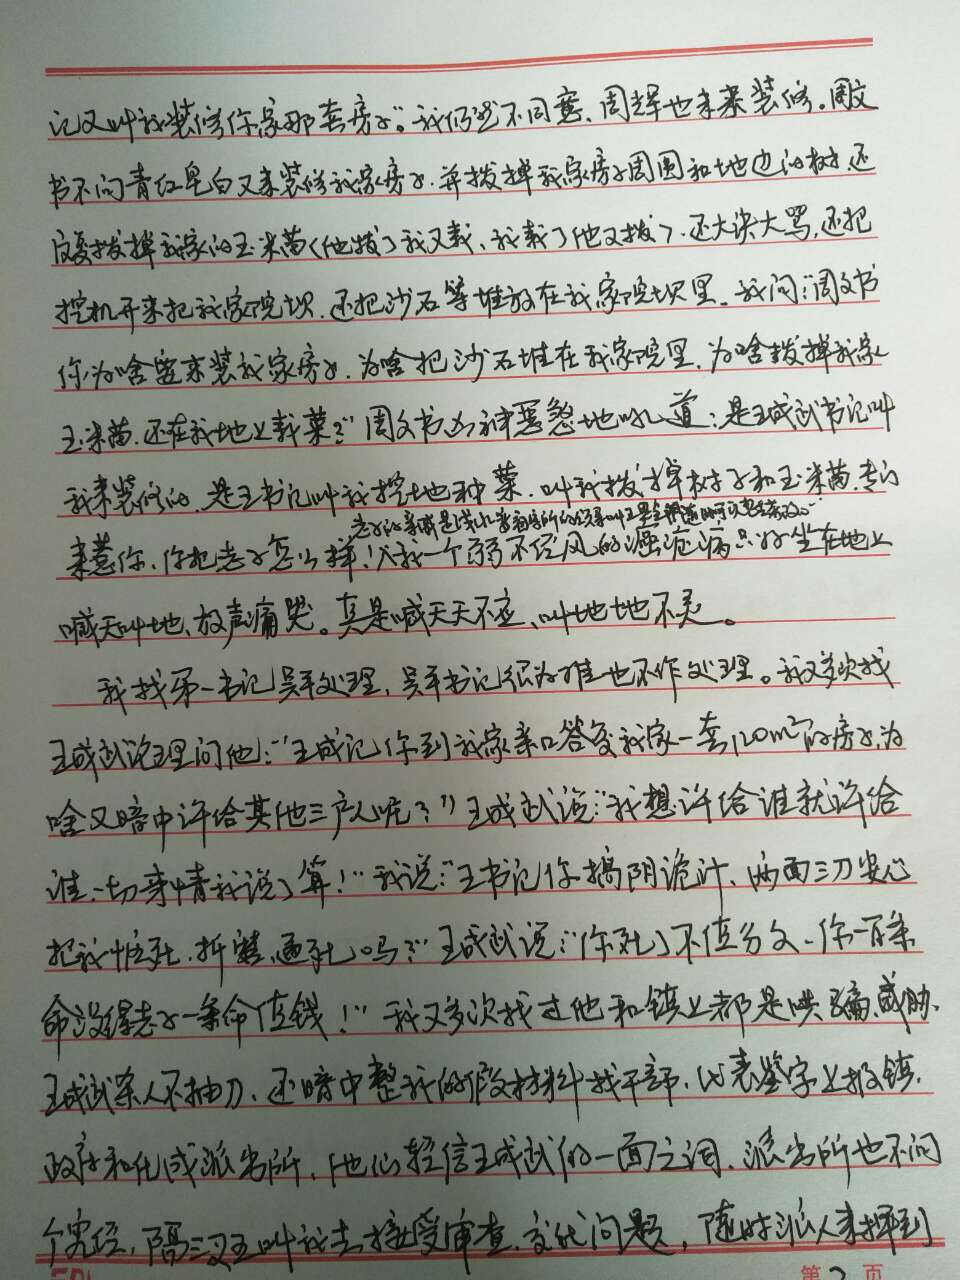 记又叫我装修你家那套房子。”我仍然不同意、周辉也未来装修。周文
书不问青红皂白又来装修我家房子.并拨掉我家房子周围和地边的树.还
反复拨掉我家的玉米苗(他拨了我又栽、我栽了他又拨).还大决大骂,还把
挖机开来把我家院坝.还把沙石等堆放在我家院坝里.我问:“周文书
你为啥要来装我家房子.为啥把沙石堆在我家院里.为啥拨掉我家
玉米苗.还在我地上栽菜?”周文书凶神恶煞地吼道:是王成武书记叫
我来装修的.是王书记叫我挖地种菜.叫我拨掉树子和玉米苗.专门
来惹你.你把老子怎么样!我一个弱不经风的 病只好坐在地上
喊天叫地、放声痛哭。真是喊天天不应、叫地地不灵。
我找第一书记吴平处理,吴平书记很为难也不作处理。我又多次找
王成武说理问他:“王成记你到我家亲口答复我家一套120m²的房子,为
啥又暗中许给其他三户人呢?”王成武说:“我想许给谁就许给
谁.一切事情我说了算!”我说:“王书记你搞阴诡计、两面三刀安心
把我忙死.折磨.逼死吗?”王成武说:“你死了不值分文.你一百条
命没得老子一条命值钱!”我又多次找过他和镇上都是哄骗、威胁.
王成武杀人不抽刀.还暗中整我的假材料找干部.代表鉴字上报镇.
政府和化成派出所.他们轻信王成武的一面之词.派出所也不问
个究竟,隔三叉五叫我去接受审查.交代问题,随时派人来押到
第2页